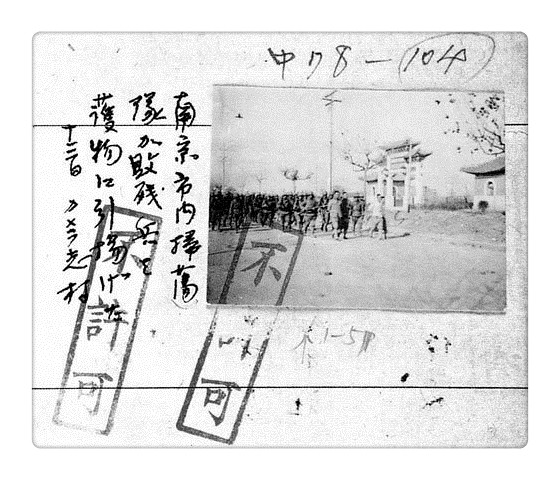 中78-104
南京市内掃蕩
隊が敗残兵を
獲物に引揚げ
十三日 カメラ志村
不許可
不許可